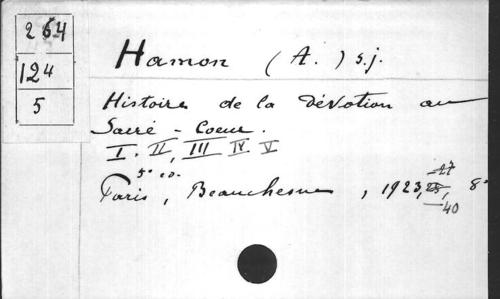 264
124
5
Hamon (A.) s.j.
Histoire de la Dévotion au
Sacré-Coeur.
I. II, III IV. V
5e éd.
Paris, Beauchesne, 1923, 25, 8°
-27
-40